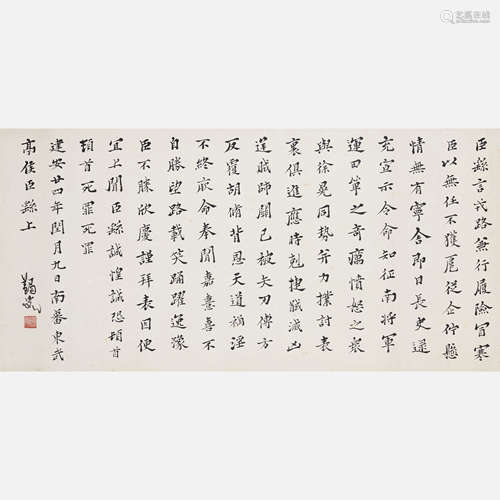 臣繇言戎路兼行履險冒寒
臣以無任不獲扈從企佇懸
情無有寧舍即日長史逯
充宣示令命知征南將軍
運田單之奇厲憤怒之衆
與徐晃同勢并力撲討表
裏俱進應時剋捷馘滅凶
逆賊帥關已被矢刃傅方
反覆胡脩背恩天道禍淫
不終厥命奉聞嘉憙喜不
自勝望路載笑踊躍逸豫
臣不勝欣慶謹拜表因便
宜上聞臣繇誠惶誠恐頓首
頓首死罪死罪
建安廿四年閏月九日南蕃東武
亭侯臣繇上